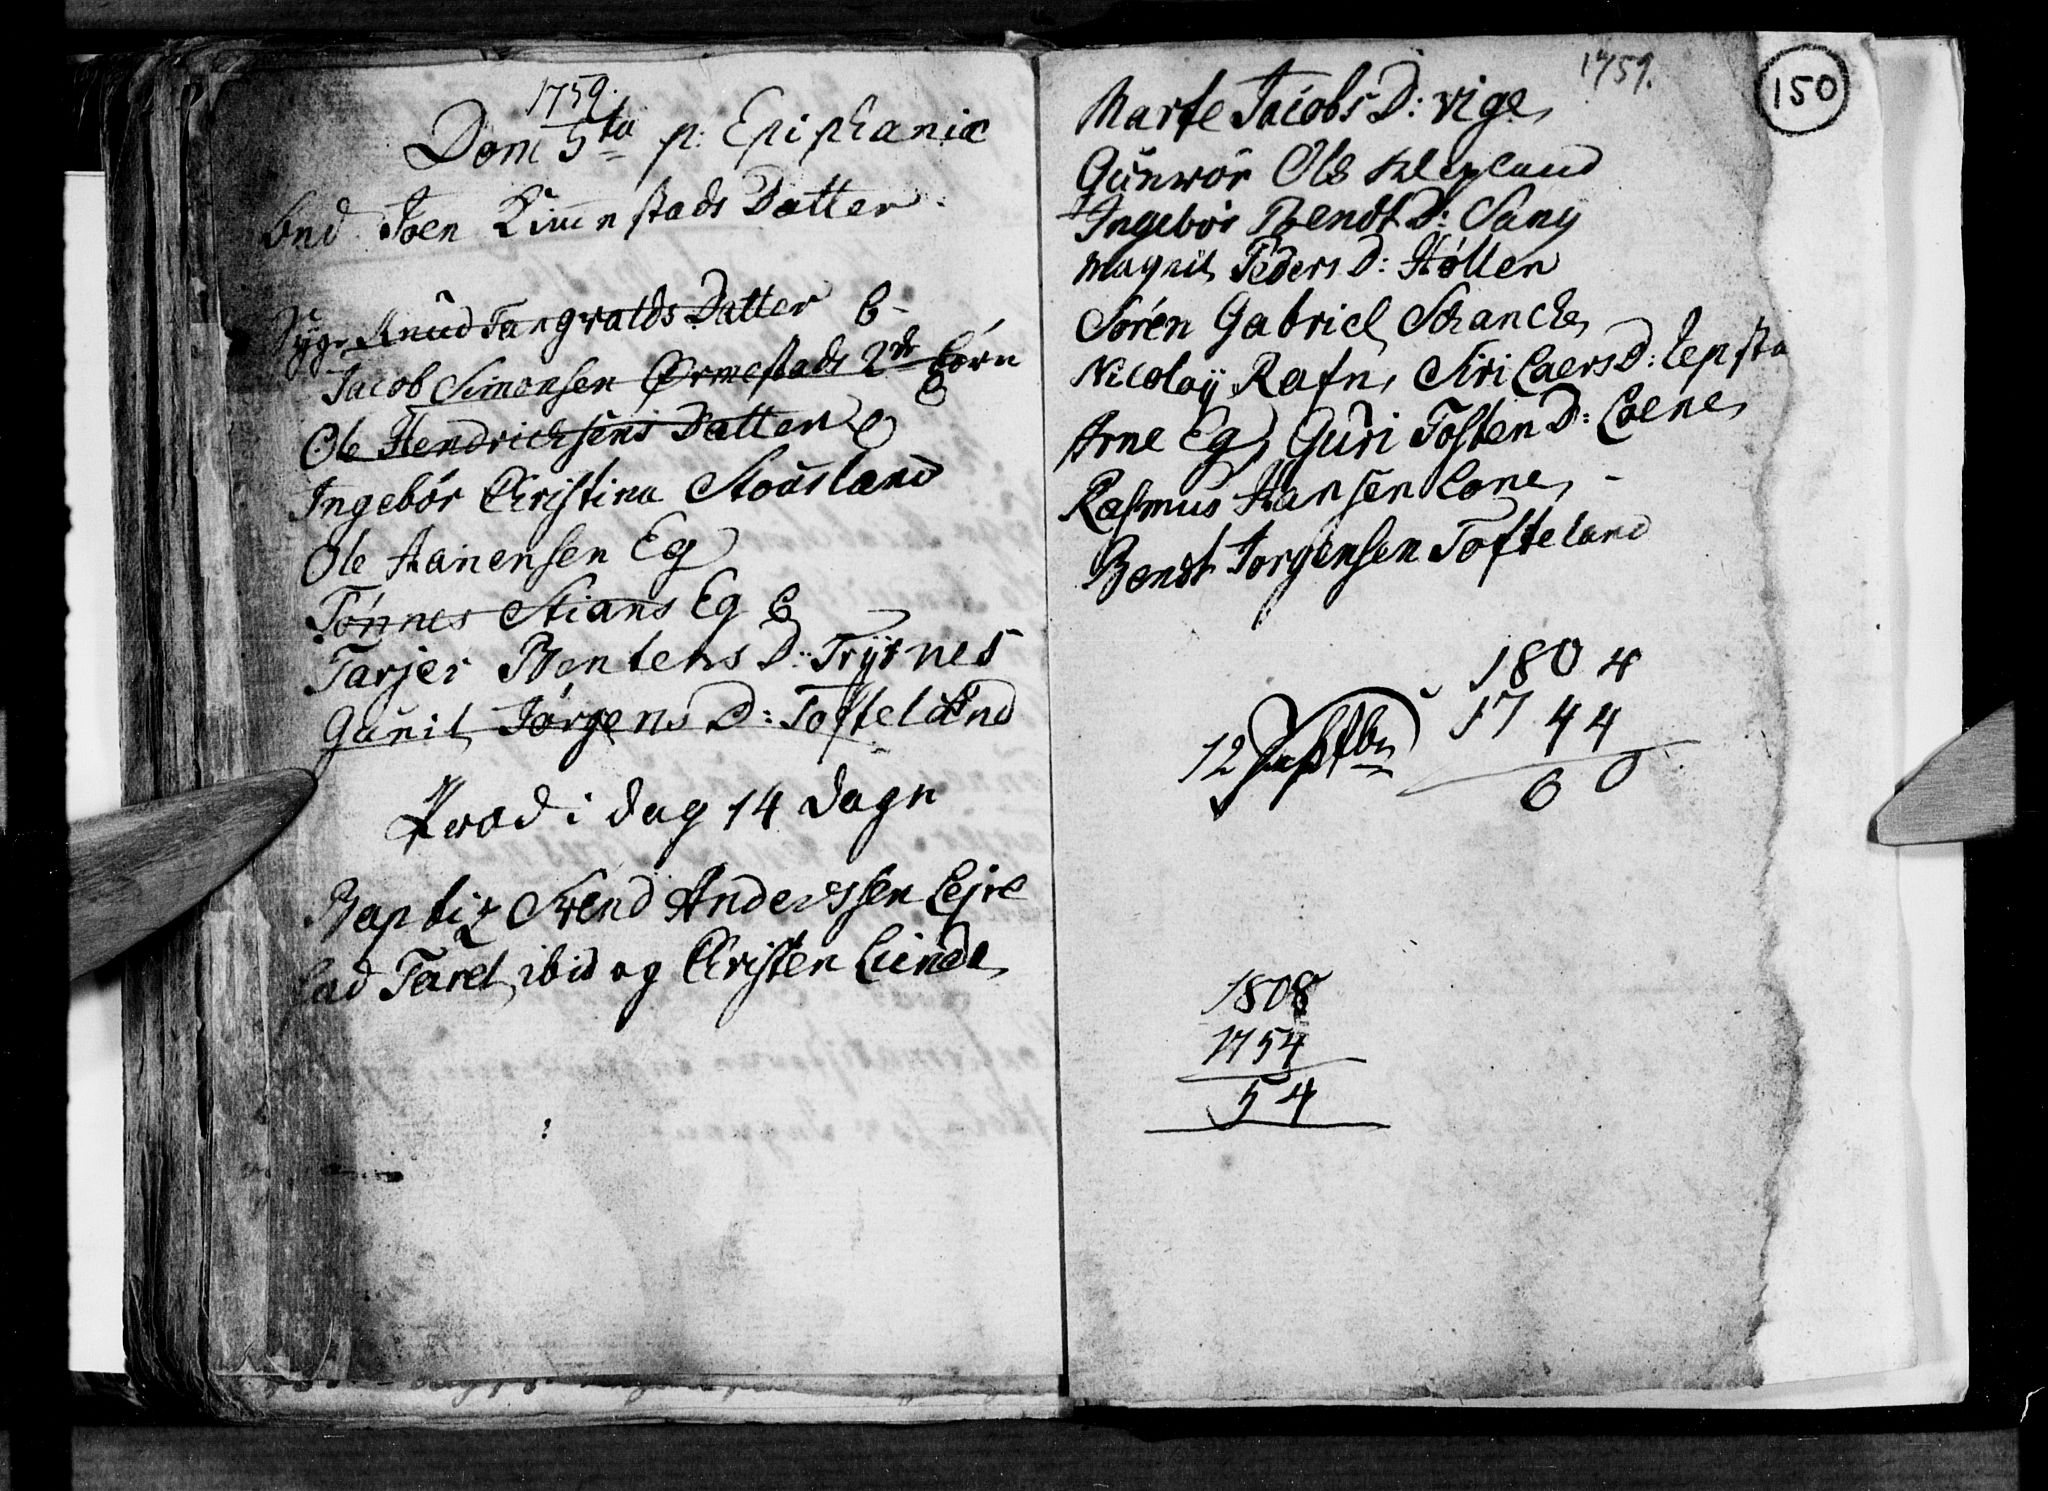 1759.
Dom 5ta p. Epiphaniæ
Joen Kimestads Datter
Syge Knud Tangvalds Datter
Jacob Simonsen Ørmestads 2de børn
Ole Hendrichsens Datter
Ingebór Christina Stousland
Ole Hanensen Eg
Tónnes Stians Eg
Tarjer Bentens D: Trysnes
Gunil Jórgens D: Tofteland
Præd i dag 14 dagn
Baptiz Svend Anderssen Lejre
Lad Tarel ibid og Christen Lunde
1759.
150
Marte Jacobs D: vige
Gunvor Ols Klepland
Ingebór Bendt D: Sany
Magnil Peders D: Hóllen
Sóren Gabriel Schanche
Nicolay Rafn, Siri Laers D: Lepsta
Arne Eg, Guri Tosten D: Loene
Rasmus Hansen Lone
Bendt Jorgensen Tofteland
1804
1744
60
12
1808
1754
54